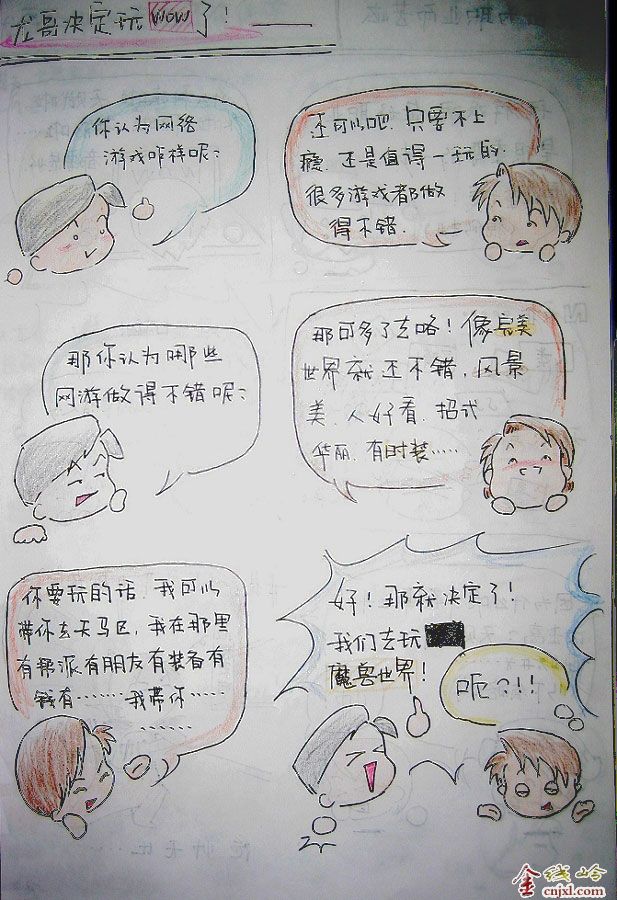 龙哥决定玩WOW了！——
你认为网络
游戏咋样呢？
还可以吧．只要不上
瘾．还是值得一玩的．
很多游戏都做
得不错．
那你认为哪些
网游做得不错呢？
那可多了去咯！像完美
世界就还不错，风景
美．人好看．招式
华丽．有时装……
你要玩的话．我可以
带你去天马区，我在那里
有帮派有朋友有装备有
钱有………我带你……
……
好！那就决定了！
我们去玩
魔兽世界！
呃？！！
金线岭
cnjxl.com